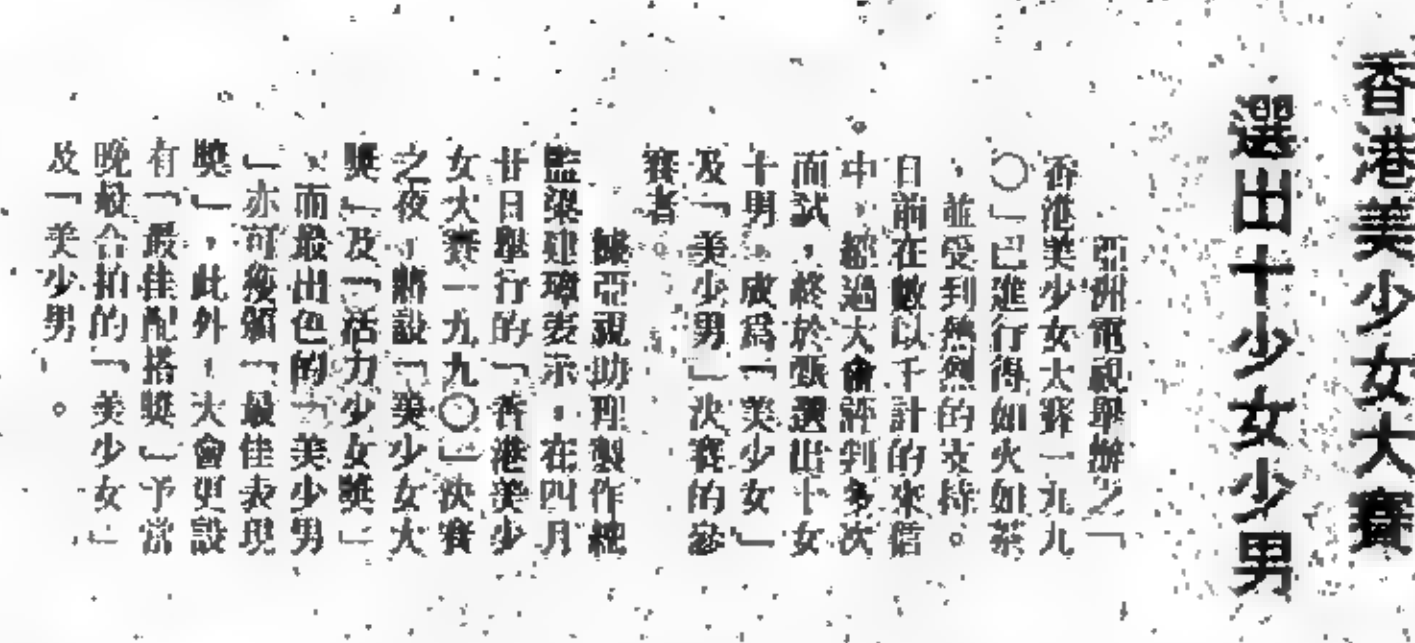 香港美少女大賽
選出十少女少男
亞洲電視舉辦之「
香港美少女大賽一九九
〇」已進行得如火如荼
，並受到熱烈的支持。
目前在數以千計的來信
中，經過大會評判多次
面試，終於甄選出十女
十男，成爲「美少女」
及「美少男」決賽的參
賽者。
據亞視助理製作總
監梁建璋表示，在四月
廿日舉行的「香港美少
女大賽一九九〇」決賽
之夜，將設「美少女大
獎」及「活力少女獎」
，而最出色的「美少男
」亦可獲頒「最佳表現
獎」，此外，大會更設
有「最佳配搭獎」予當
晚最合拍的「美少女」
及「美少男」。